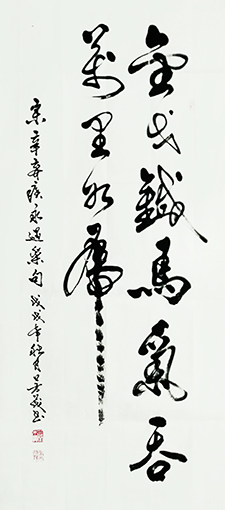 金戈鐵馬氣吞
萬里如虎
宋辛弃疾永遇乐句戊戌年秋月书